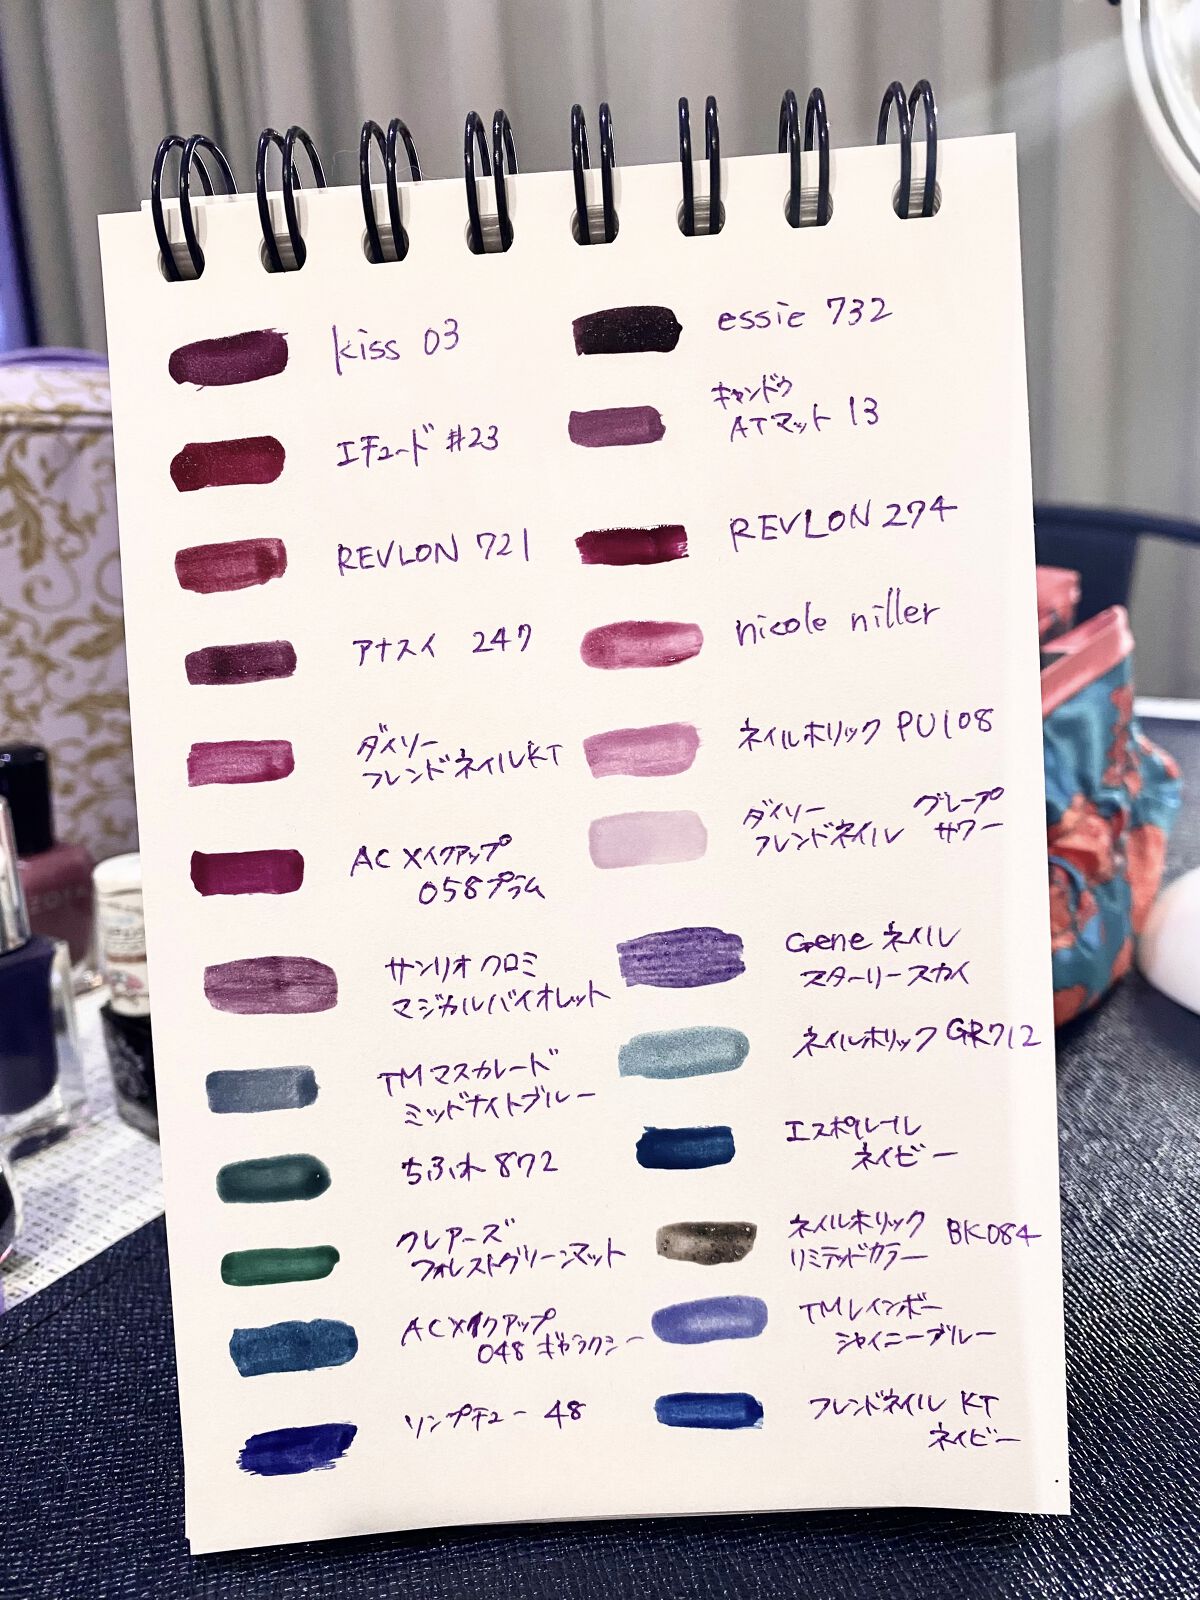 kiss 03
エチュード #23
REVLON 721
アナスイ 247
ダイソー
フレンドネイルKT
AC メイクアップ
058プラム
サンリオ クロミ
マジカルバイオレット
TM マスカレード
ミッドナイトブルー
ちふれ 872
クレアーズ
フォレストグリーンマット
ACメイクアップ
048 ギャラクシー
ソンプチュー 48
essie 732
キャンドゥ
ATマット 13
REVLON 274
nicole niller
ネイルホリック PU108
ダイソー グレープ
フレンドネイル サワー
Gene ネイル
スターリースカイ
ネイルホリック GR712
エスポルール
ネイビー
ネイルホリック BK084
リミテッドカラー
TMレインボー
シャイニーブルー
フレンドネイル KT
ネイビー